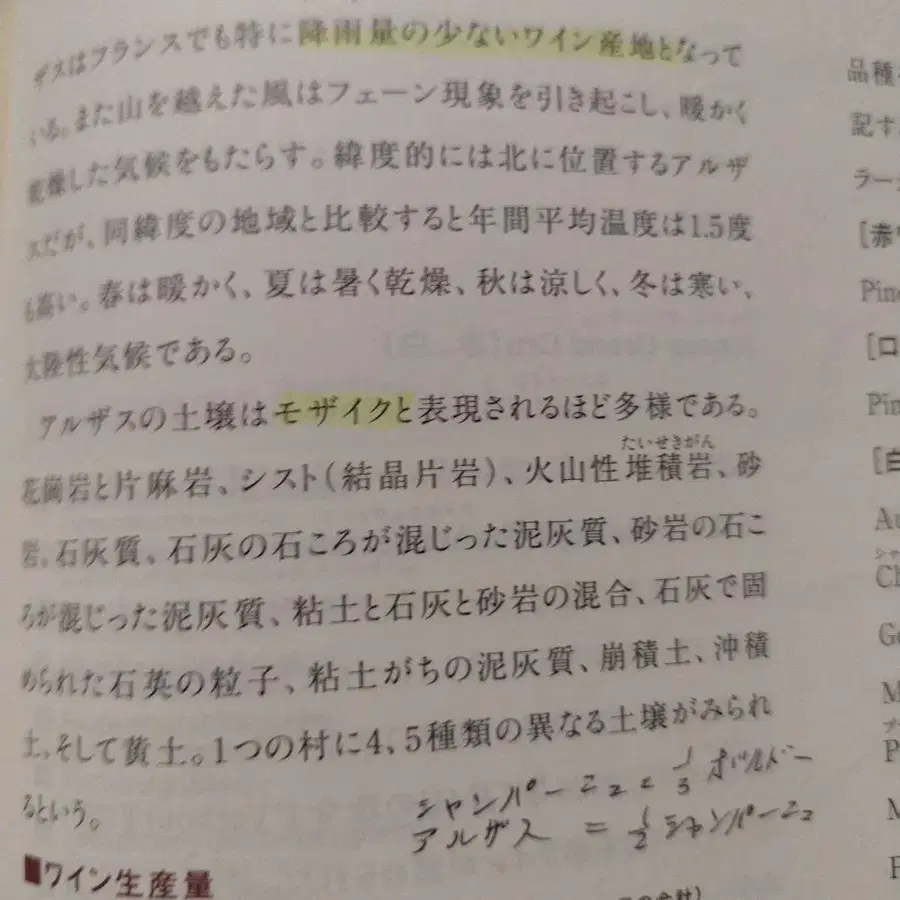 ザスはフランスでも特に降雨量の少ないワイン産地となって
いる。また山を越えた風はフェーン現象を引き起こし、暖かく
乾燥した気候をもたらす。緯度的には北に位置するアルザ
スだが、同緯度の地域と比較すると年間平均温度は1.5度
も高い。春は暖かく、夏は暑く乾燥、秋は涼しく、冬は寒い、
大陸性気候である。
アルザスの土壌はモザイクと表現されるほど多様である。
たいせきがん
花崗岩と片麻岩、シスト(結晶片岩)、火山性堆積岩、砂
岩。石灰質、石灰の石ころが混じった泥灰質、砂岩の石こ
ろが混じった泥灰質、粘土と石灰と砂岩の混合、石灰で固
められた石英の粒子、粘土がちの泥灰質、崩積土、沖積
土、そして黄土。1つの村に4、5種類の異なる土壌がみられ
るという。
シャンパーニュ = 1/3 ボルドー
アルザス = 1/2 シャンパーニュ
■ワイン生産量
品種
記す
ラー
[赤
Pin
[ロ
Pin
[白
Au
シャ
Ch
Ge
M
P
M